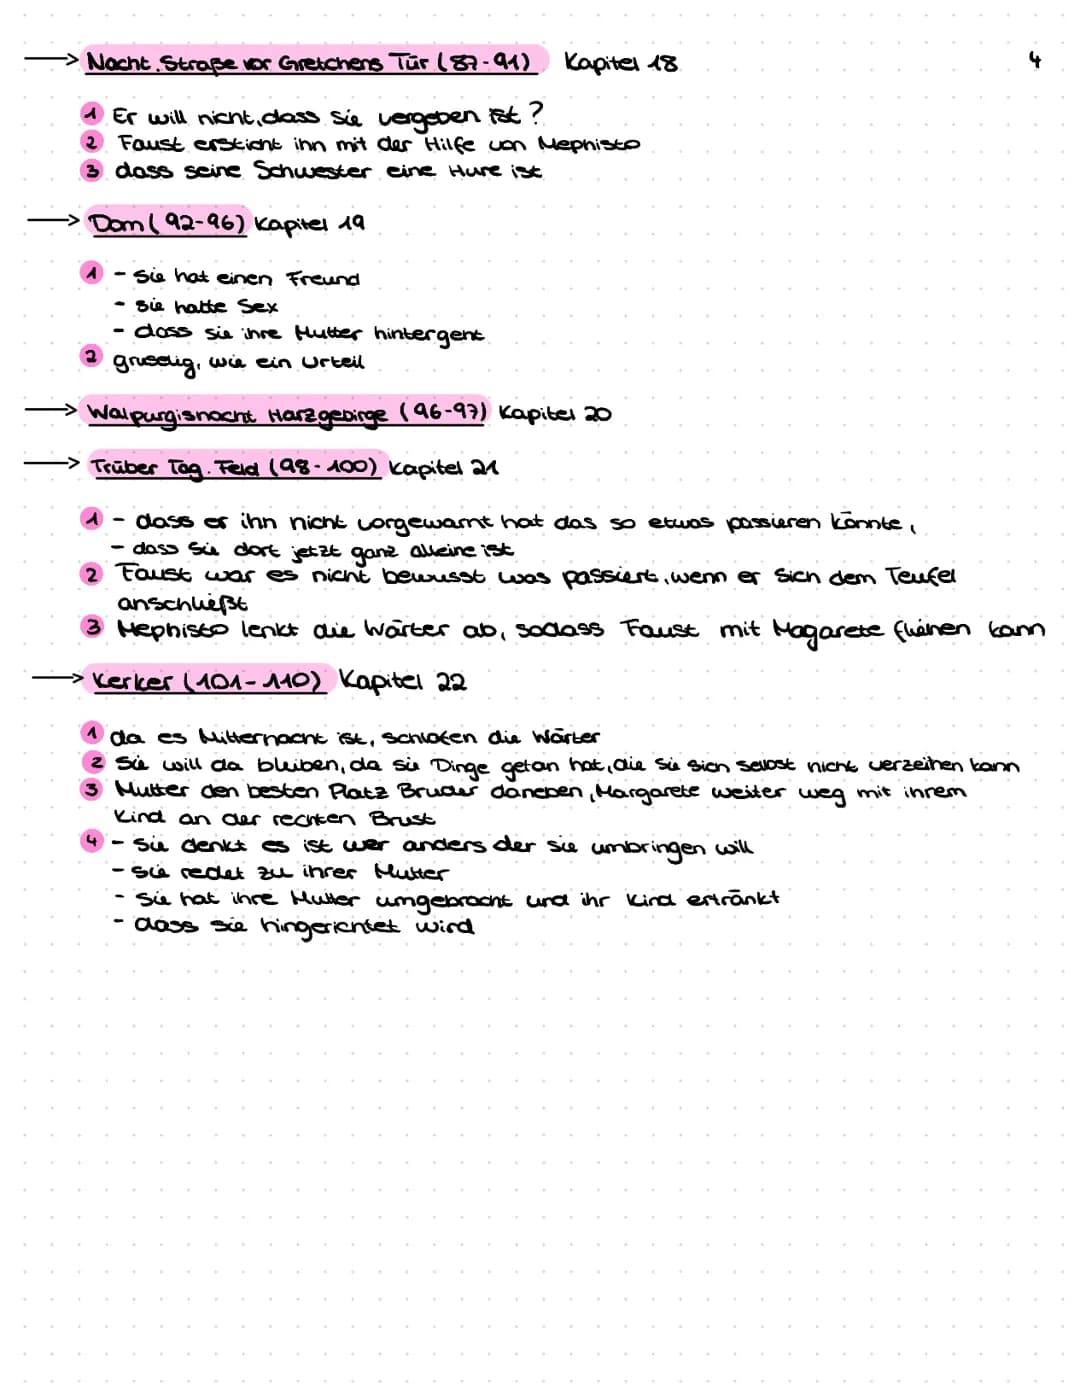 → Nacht. Straße vor Gretchens Tür (87-91) Kapitel 18 4
1 Er will nicht, dass sie vergeben ist?
2 Faust ersticht ihn mit der Hilfe von Mephisto
3 dass seine Schwester eine Hure ist
→ Dom (92-96) Kapitel 19
1 - sie hat einen Freund
- sie hatte Sex
- dass sie ihre Mutter hintergeht
2 gruselig, wie ein Urteil
→ Walpurgisnacht Harzgebirge (96-97) Kapitel 20
→ Trüber Tag. Feld (98-100) Kapitel 21
1 - dass er ihn nicht vorgewarnt hat das so etwas passieren könnte,
- dass sie dort jetzt ganz alleine ist
2 Faust war es nicht bewusst was passiert, wenn er sich dem Teufel
anschließt
3 Mephisto lenkt die Wärter ab, sodass Faust mit Magarete fliehen kann
→ Kerker (101-110) Kapitel 22
1 da es Mitternacht ist, schlafen die Wärter
2 Sie will da bleiben, da sie Dinge getan hat, die sie sich selbst nicht verzeihen kann
3 Mutter den besten Platz Bruder daneben, Margarete weiter weg mit ihrem
Kind an der rechten Brust
4 - sie denkt es ist wer anders der sie umbringen will
- sie redet zu ihrer Mutter
- sie hat ihre Mutter umgebracht und ihr Kind ertränkt
- dass sie hingerichtet wird